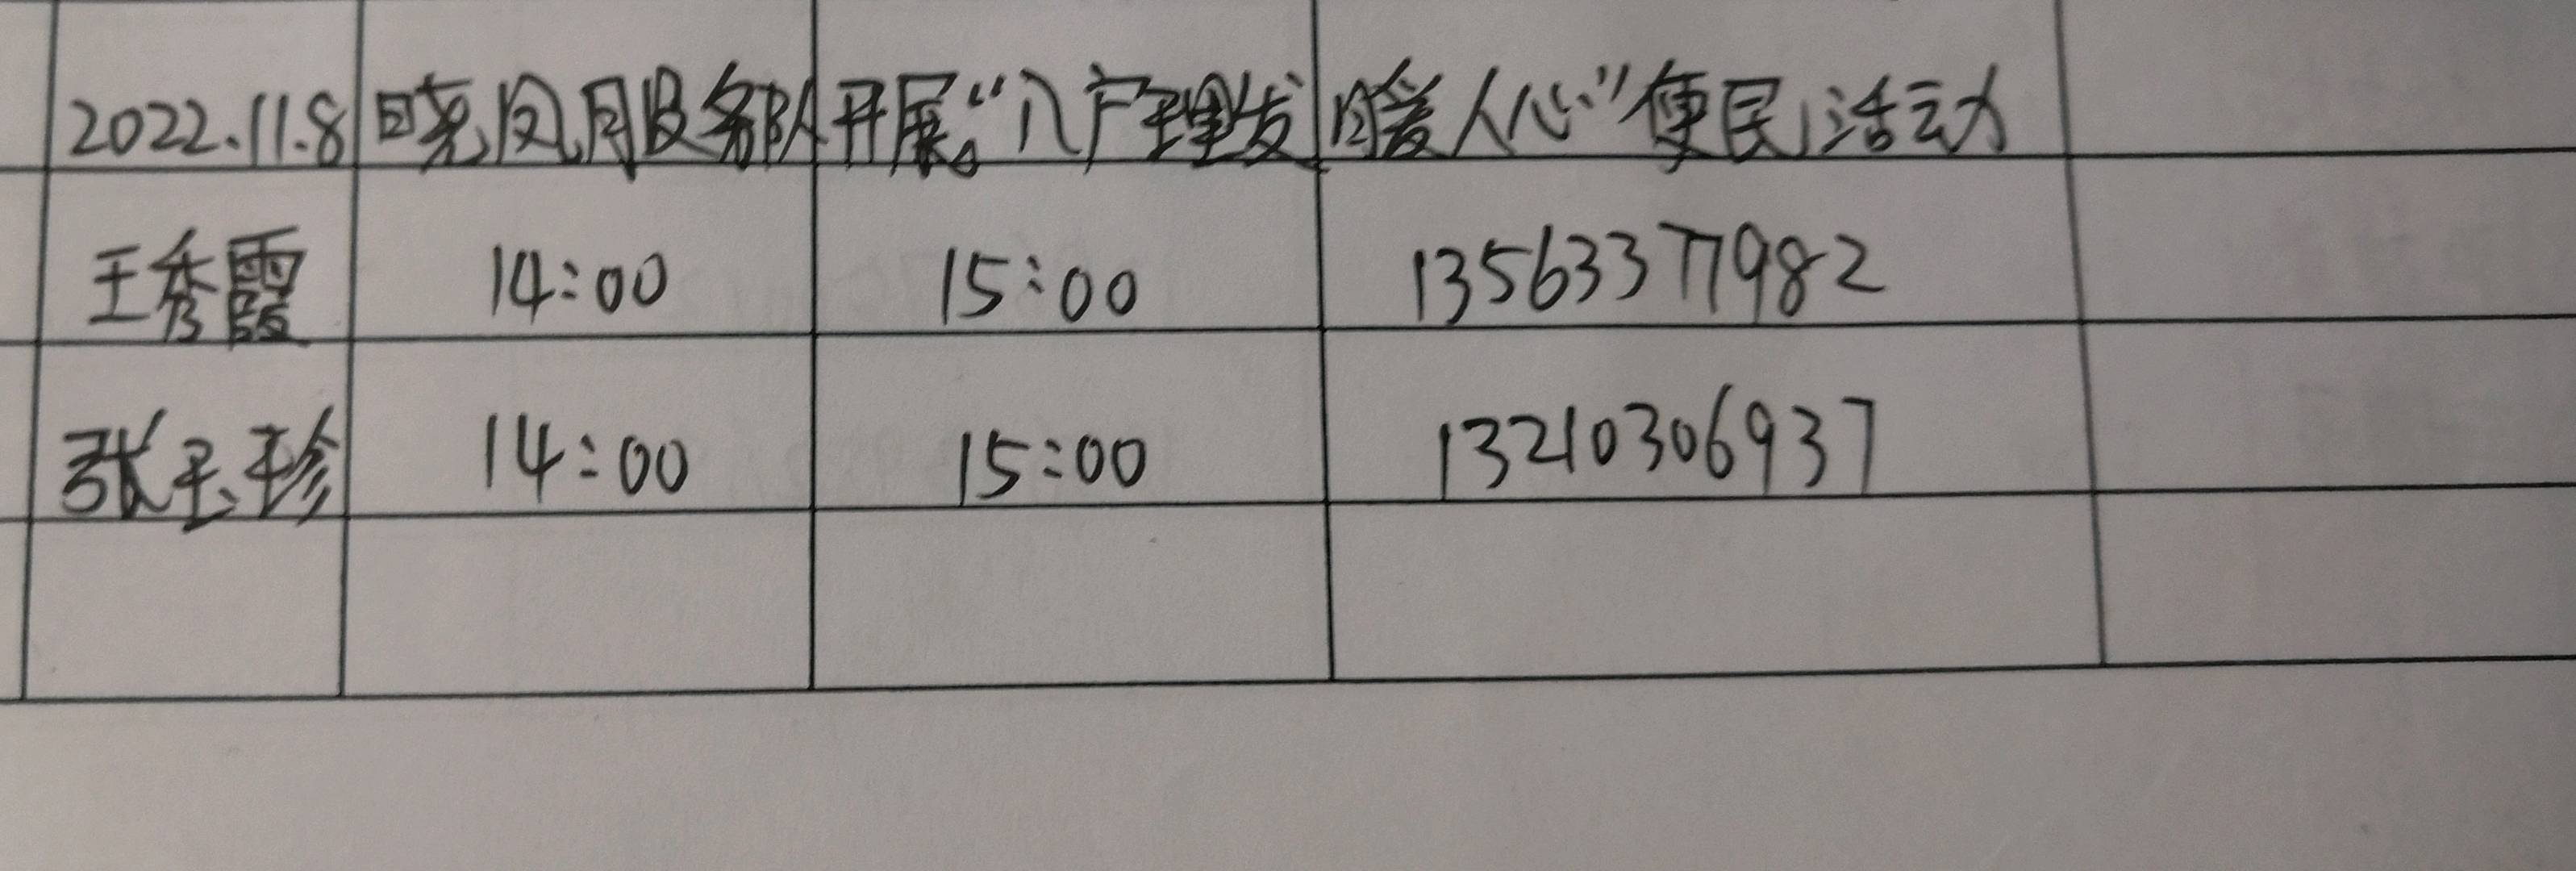 2022.11.8 晓凤服务队开展“入户理发暖人心”便民活动
王秀霞 14:00 15:00 13563377982
张玉珍 14:00 15:00 13210306937